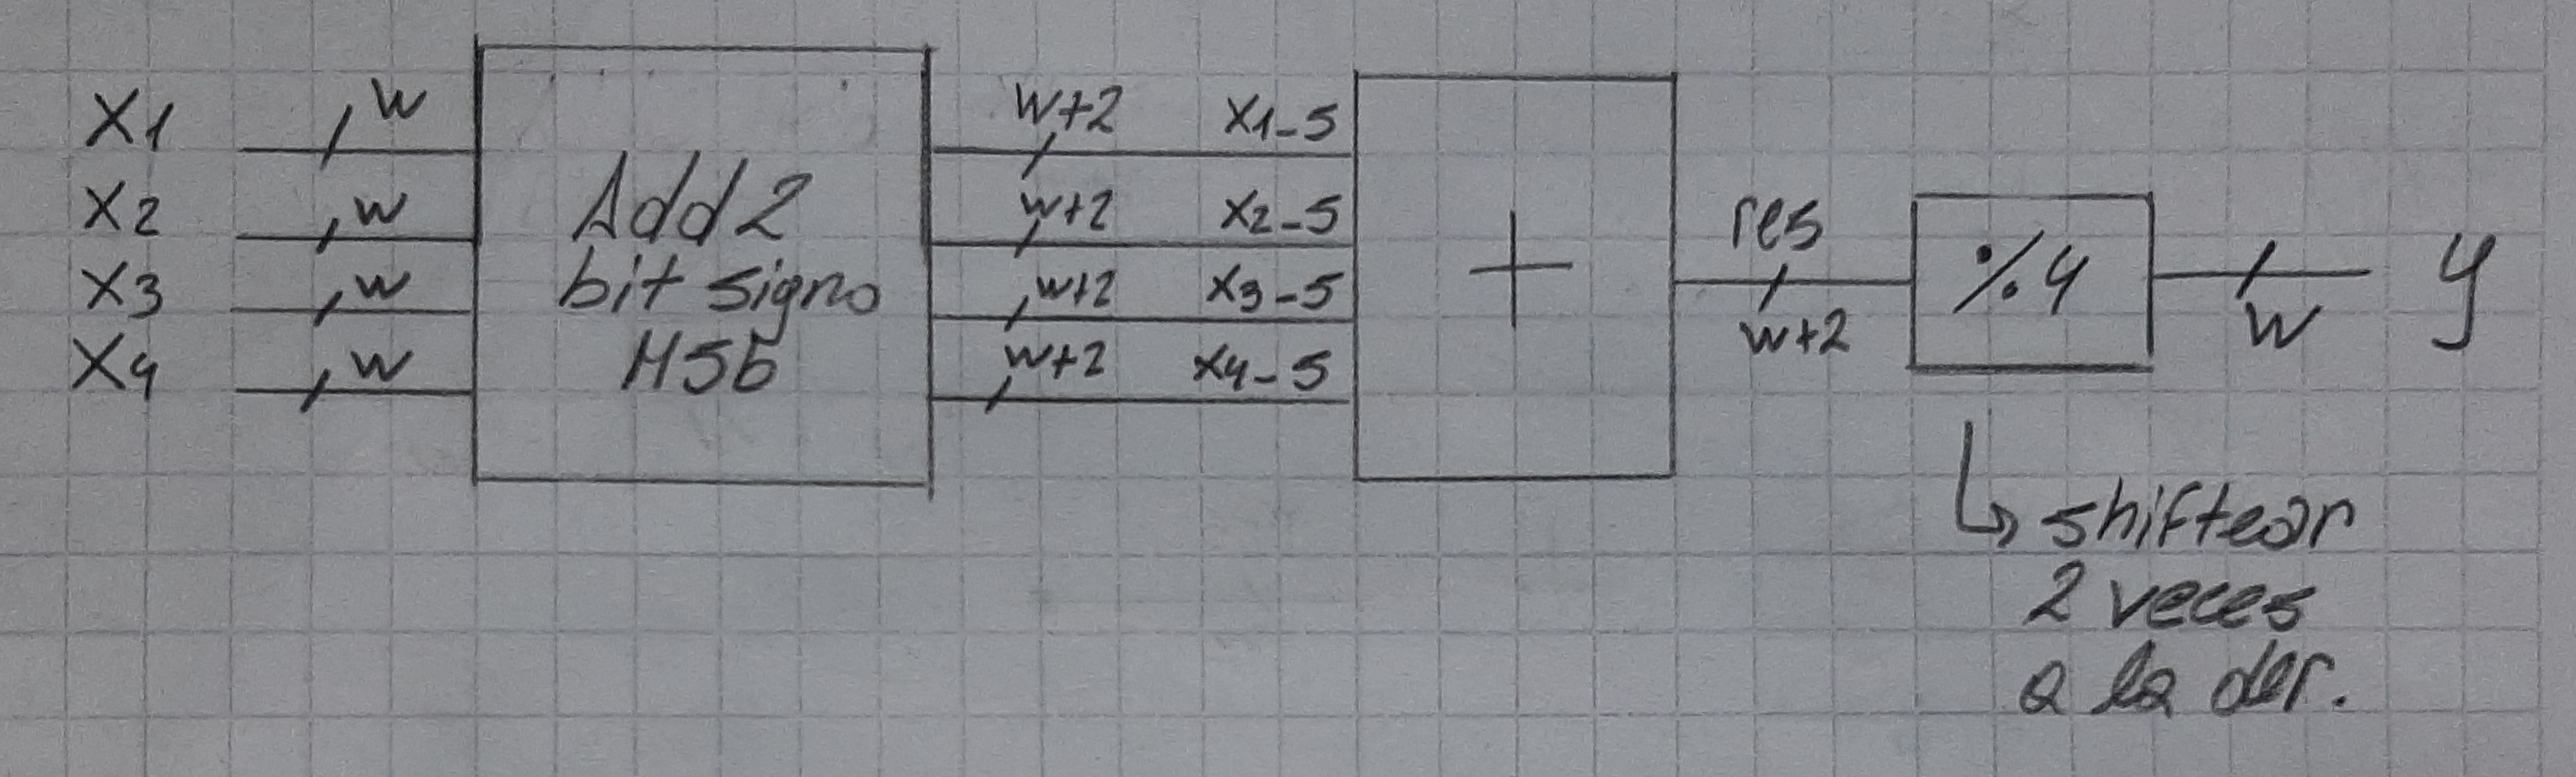 X1 w
X2 w
X3 w
X4 w
Add 2
bit signo
MSb
w+2 X1_S
w+2 X2_S
w+2 X3_S
w+2 X4_S
+
res
w+2
%4
w
y
↳ shiftear
2 veces
a la der.